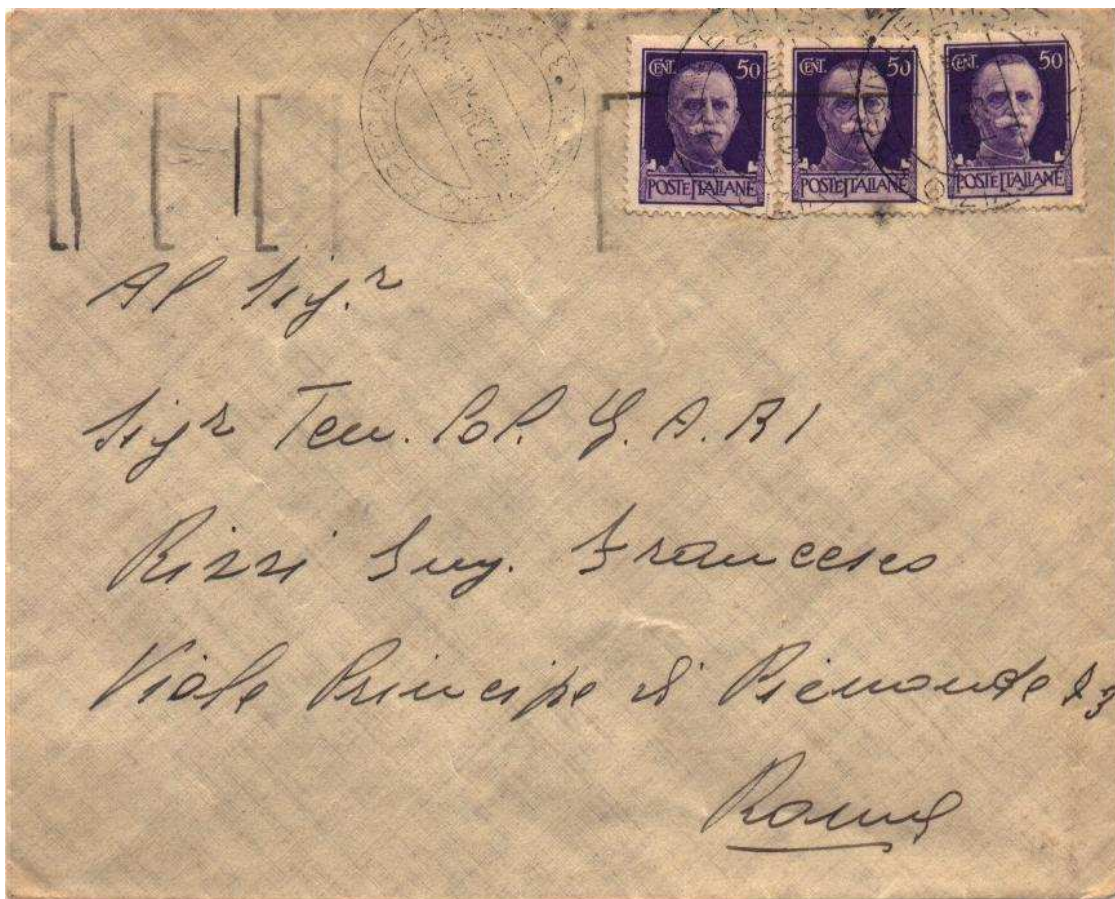 CENT. 50 CENT. 50 CENT. 50
POSTE ITALIANE POSTE ITALIANE POSTE ITALIANE
Al Sig.r
Sig.r Ten. Col. G. A. R I
Rizzi Ing. Francesco
Viale Principe di Piemonte
Roma